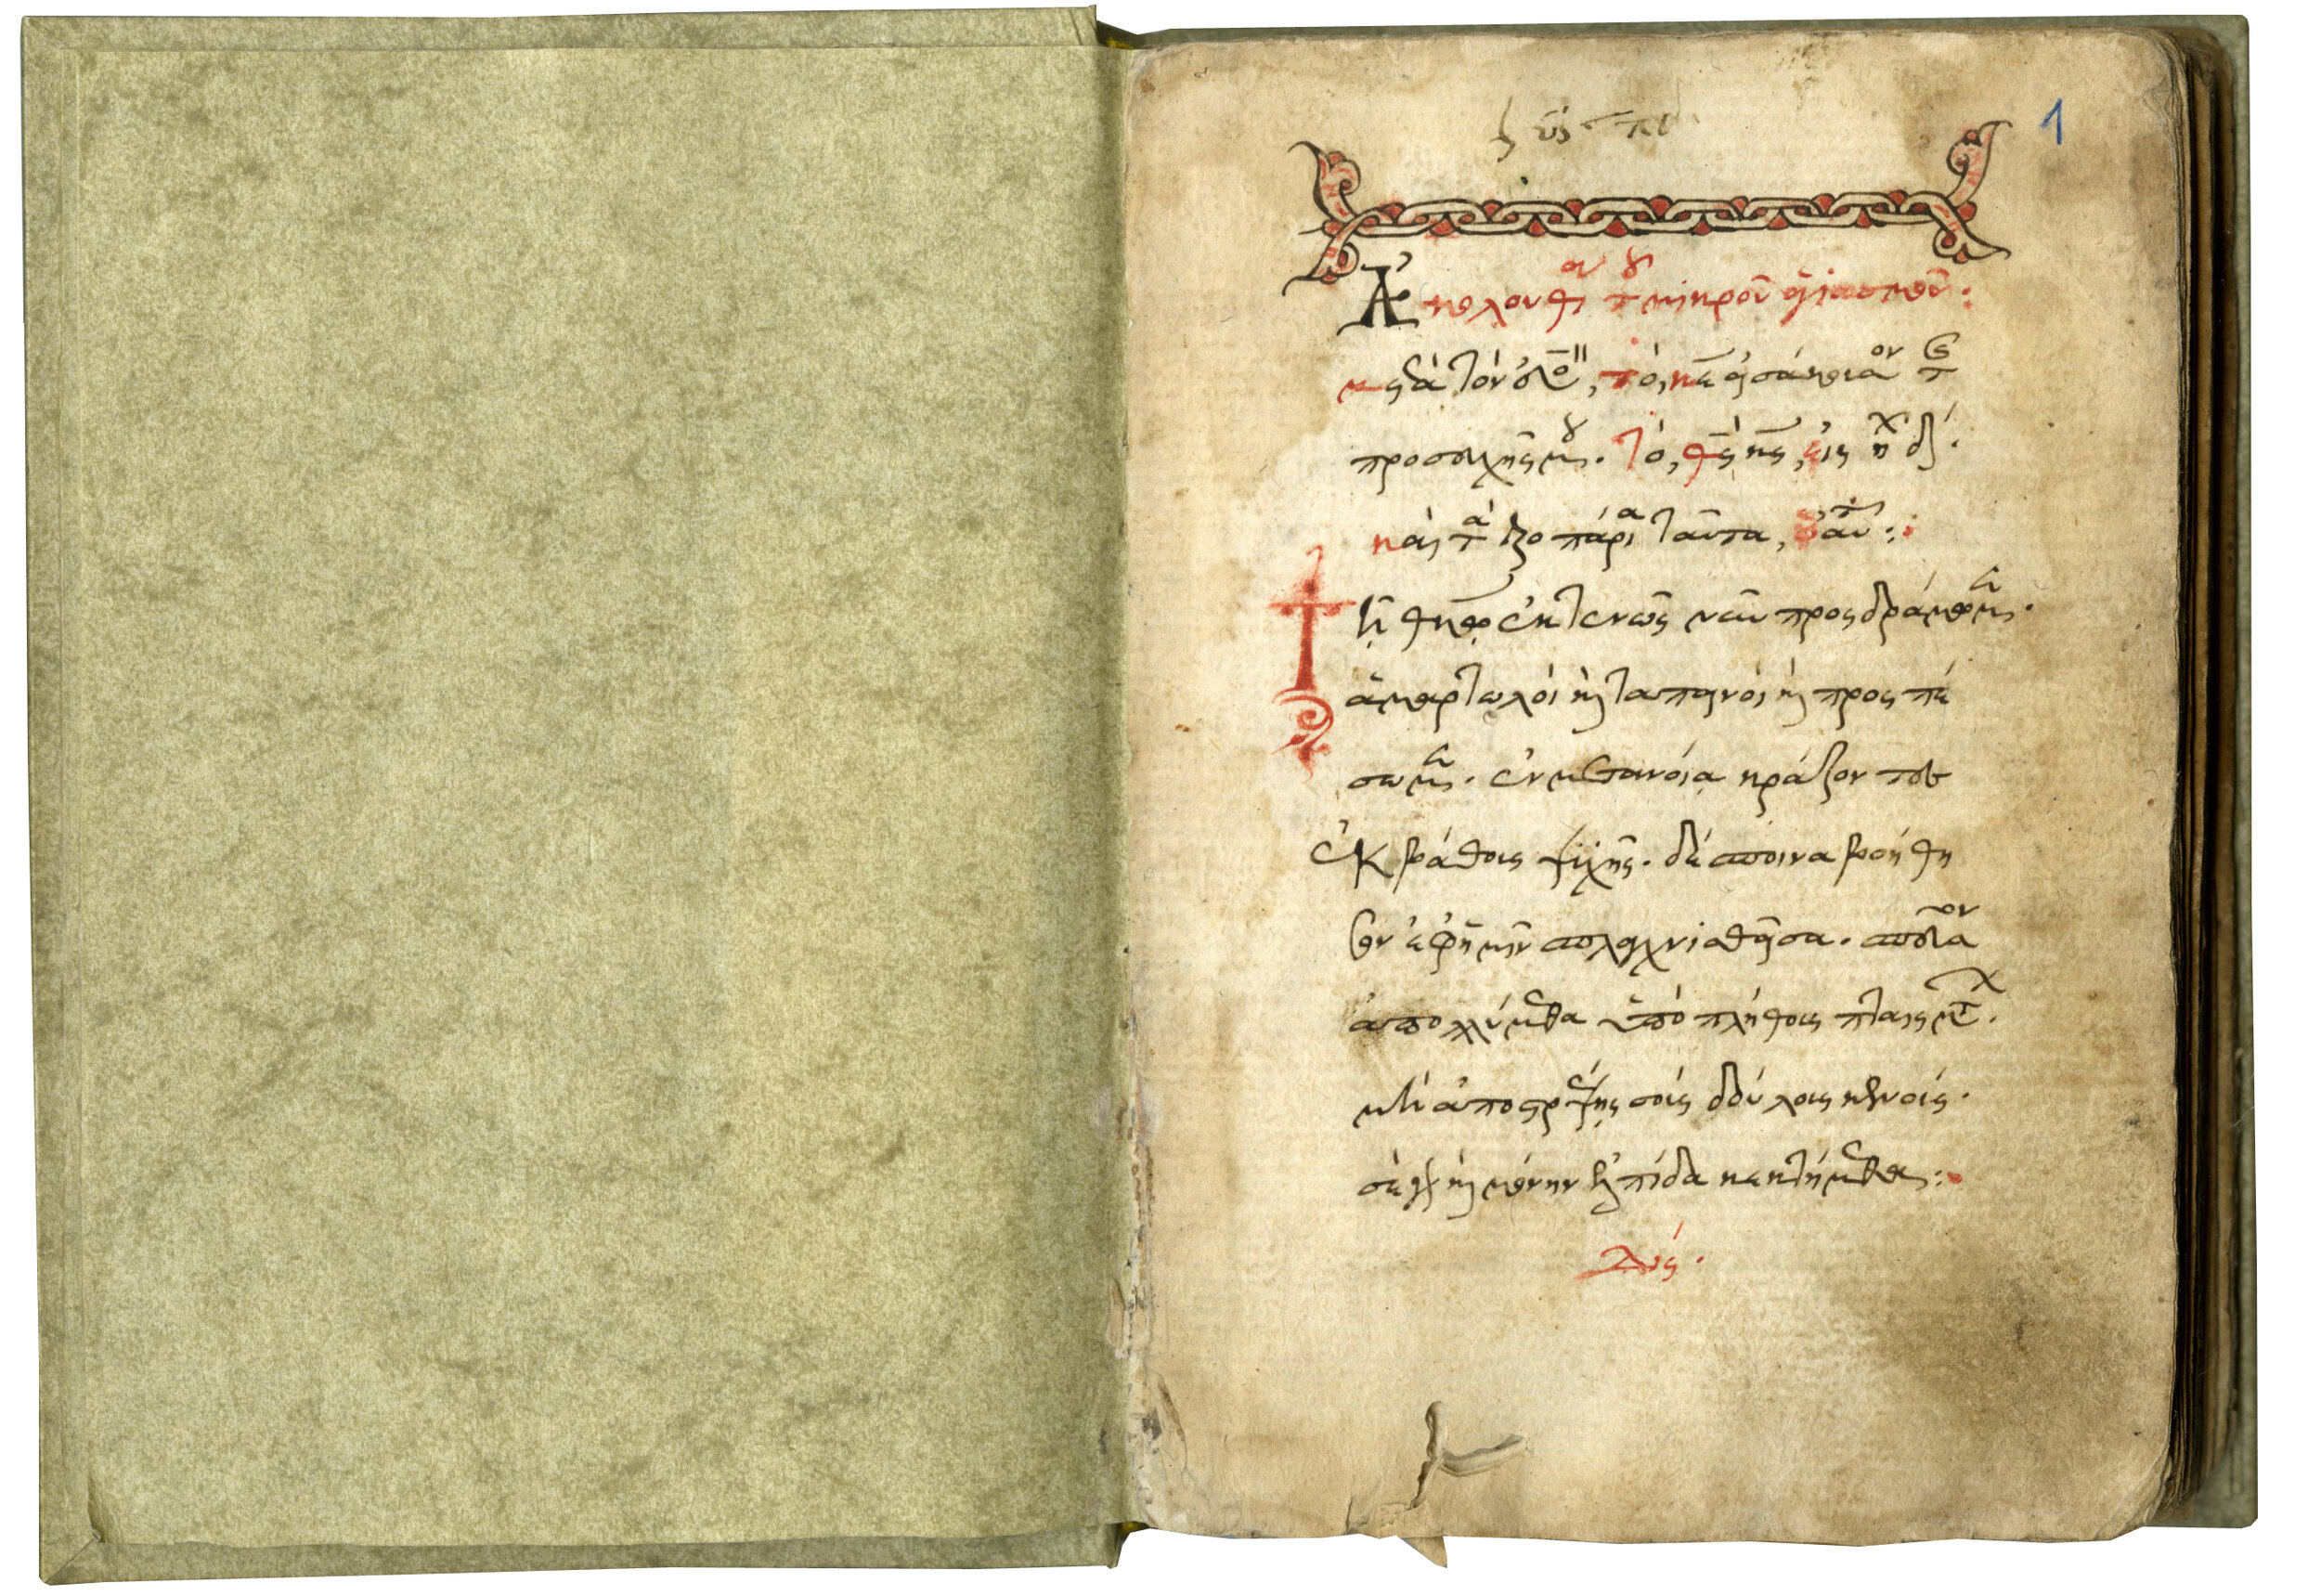 1
Ἀκολουθία τοῦ μικροῦ ἁγιασμοῦ.
μετὰ τὸν , τὸ, Κε εἰσάκουσον τῆς
προσευχῆς μου. τὸ, Θς Κς, εἰς ἦχ δ΄.
καὶ τὰ τροπάρια ταῦτα,
Τῇ θκω ἐκτενῶς νῦν προσδράμωμεν.
ἁμαρτωλοὶ καὶ ταπεινοὶ καὶ προσπέ
σωμεν. ἐν μετανοίᾳ κράζοντες
ἐκ βάθους ψυχῆς. δέσποινα βοήθη
σον ἐφ' ἡμῖν σπλαχνισθεῖσα. σπεῦσον
ἀπολλύμεθα ὑπὸ πλήθους πταισμάτων.
μὴ ἀποστρέψῃς σοὺς δούλους κενούς.
σὲ γὰρ καὶ μόνην ἐλπίδα κεκτήμεθα: